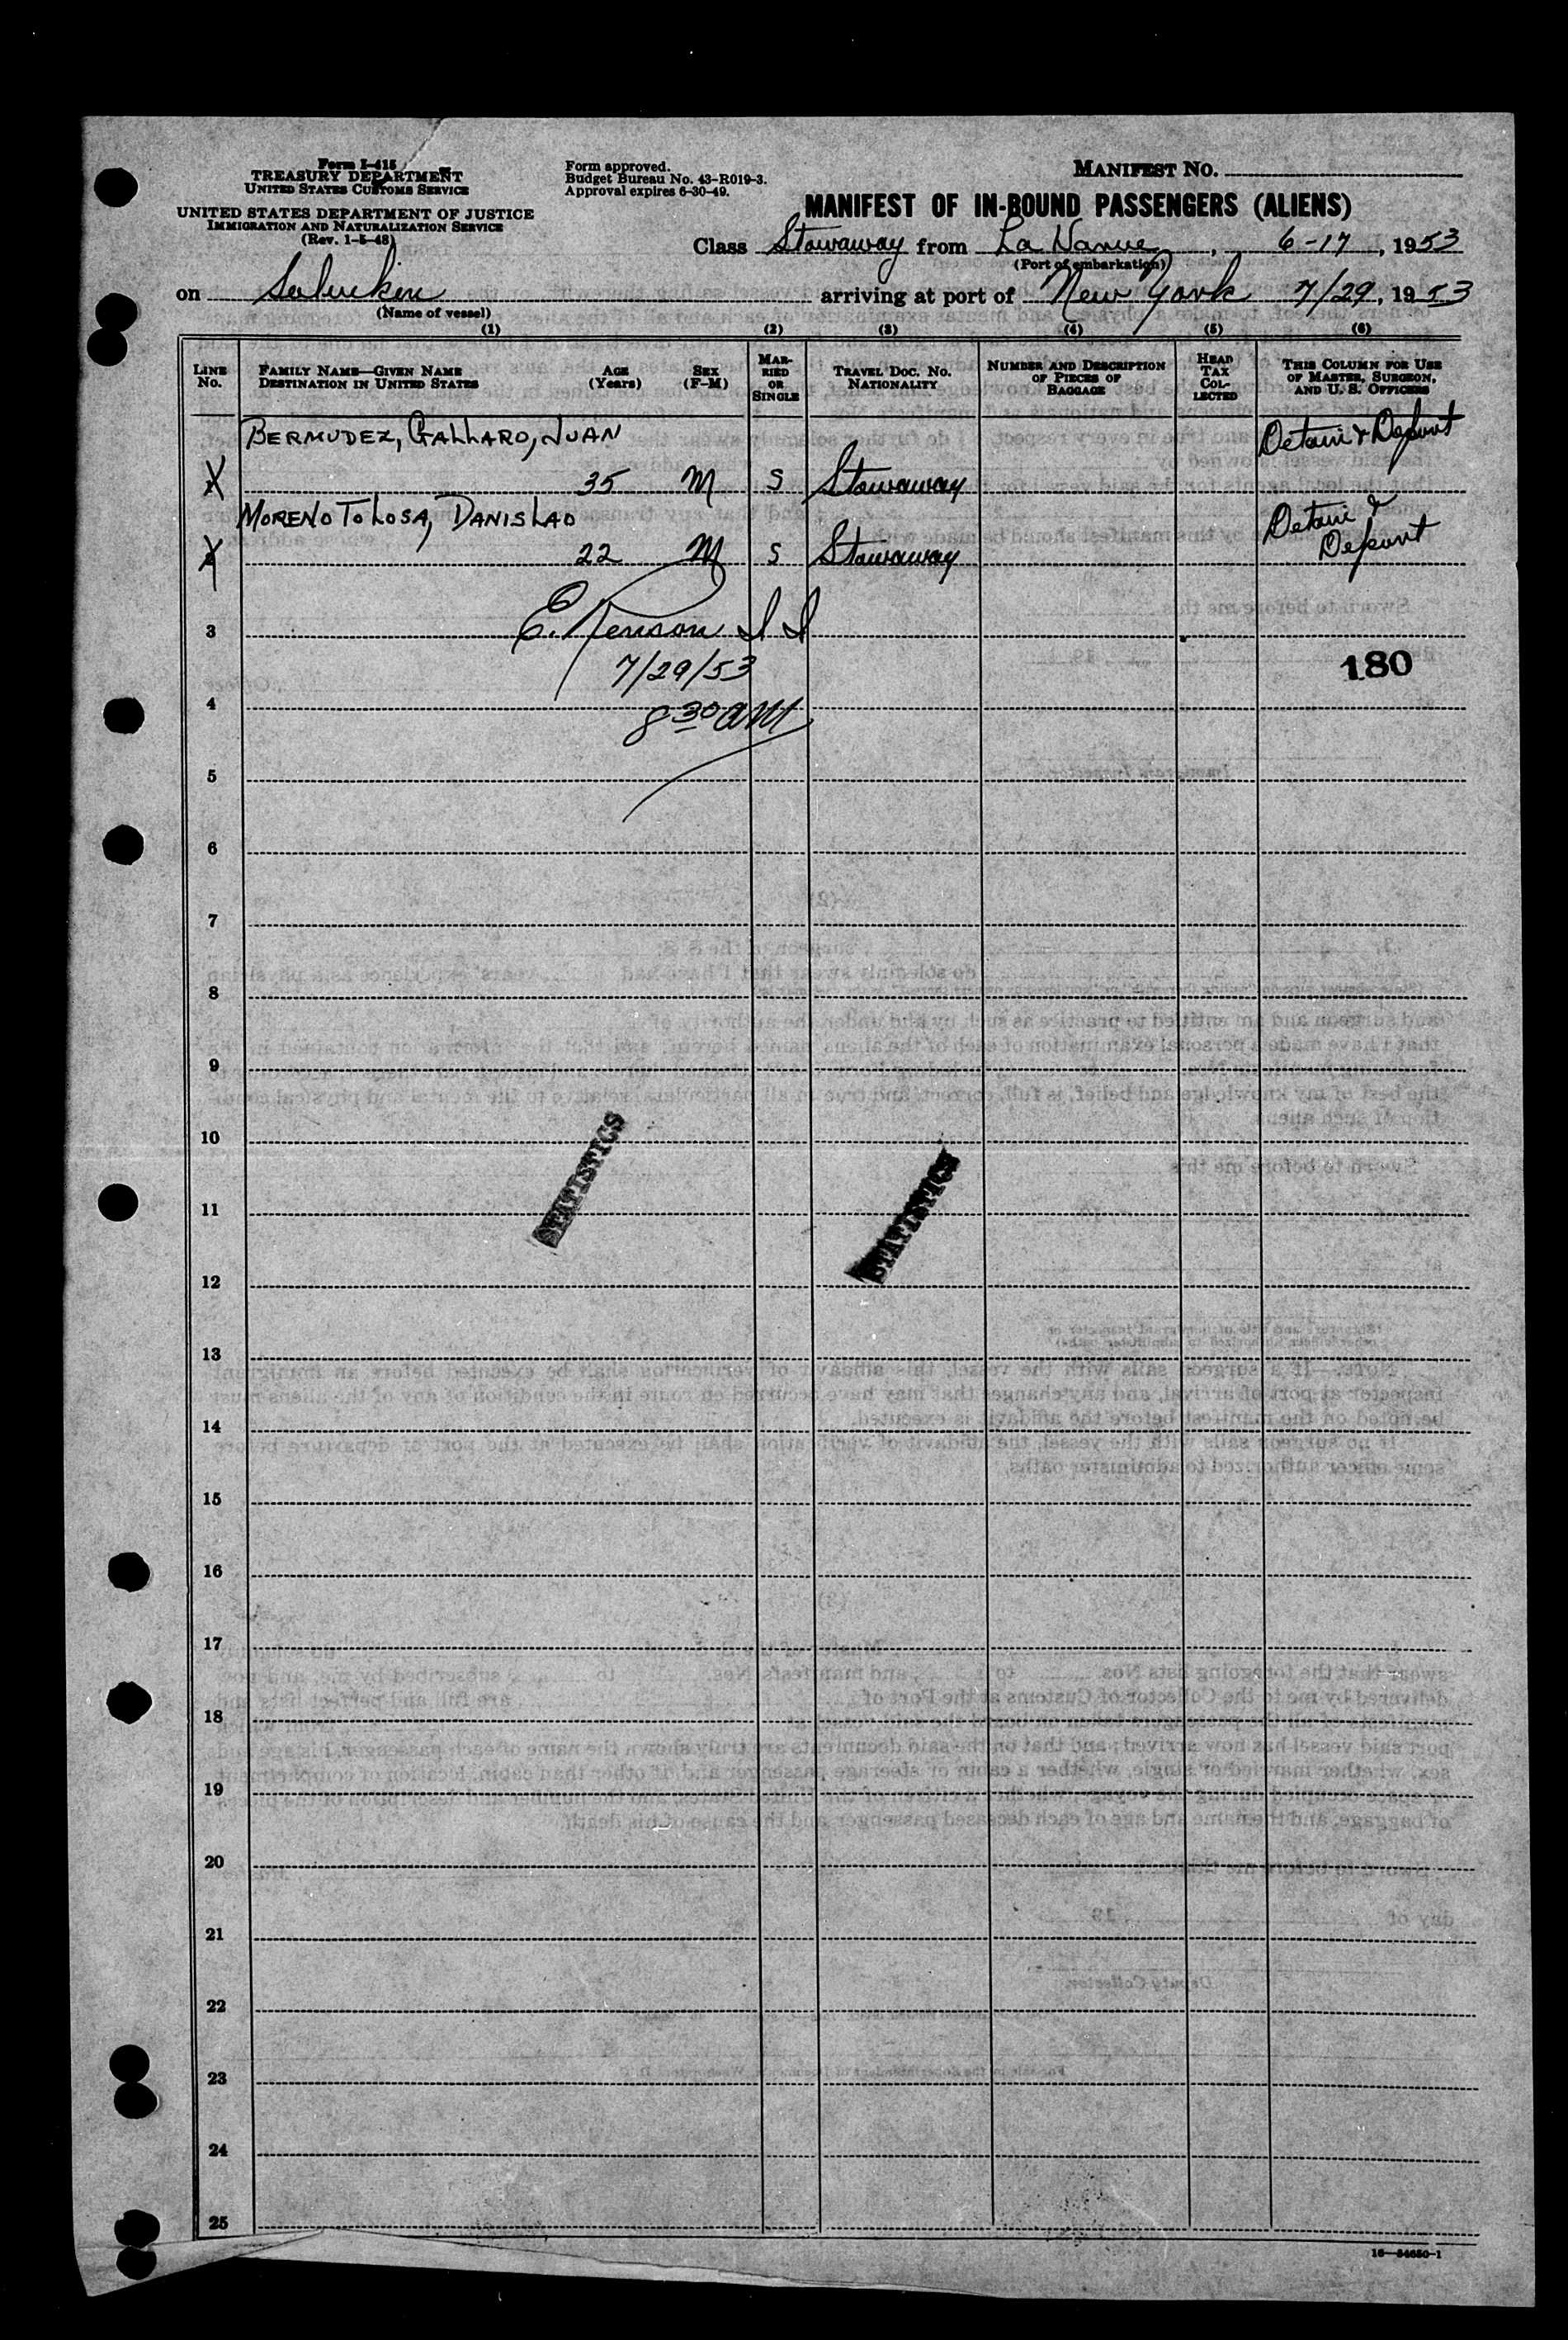 Form I-415
TREASURY DEPARTMENT
UNITED STATES CUSTOMS SERVICE
UNITED STATES DEPARTMENT OF JUSTICE
IMMIGRATION AND NATURALIZATION SERVICE
(Rev. 1-5-48)
Form approved.
Budget Bureau No. 43-R019-3.
Approval expires 6-30-49.
MANIFEST NO.
MANIFEST OF IN-BOUND PASSENGERS (ALIENS)
Class Stowaway from La 6-17, 1953
(Port of embarkation)
on arriving at port of New York 7/29, 1953
(Name of vessel)
(1) (2) (3) (4) (5) (6)
LINE No. FAMILY NAME—GIVEN NAME DESTINATION IN UNITED STATES AGE (Years) SEX (F-M) MARRIED OR SINGLE TRAVEL DOC. NO. NATIONALITY NUMBER AND DESCRIPTION OF PIECES OF BAGGAGE HEAD TAX COLLECTED THIS COLUMN FOR USE OF MASTER, SURGEON, AND U. S. OFFICERS
BERMUDEZ, GALLARO, JUAN Detain & Deport
X 35 M S Stowaway
MORENO TOLOSA, DANISLAO Detain &
X 22 M S Stowaway Deport
3 E. I I
7/29/53 180
4
8 30 AM
5
6
7
8
9
10
STATISTICS STATISTICS
11
12
13
14
15
16
17
18
19
20
21
22
23
24
25
16—54650-1